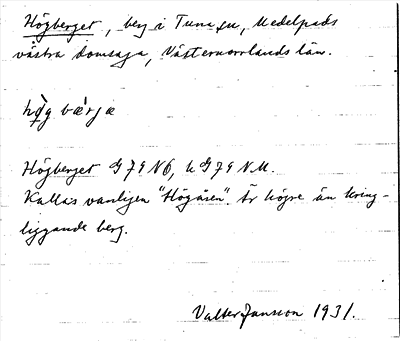 Högberget, berg i Tuna sn, Medelpads
västra domsaga, Västernorrlands län.
hø̀g bæ̀rjæ
Högberget G 79 NÖ, u G 79 NM.
Kallas vanligen "Högåsen". Är högre än kring-
liggande berg.
Valter Jansson 1931.